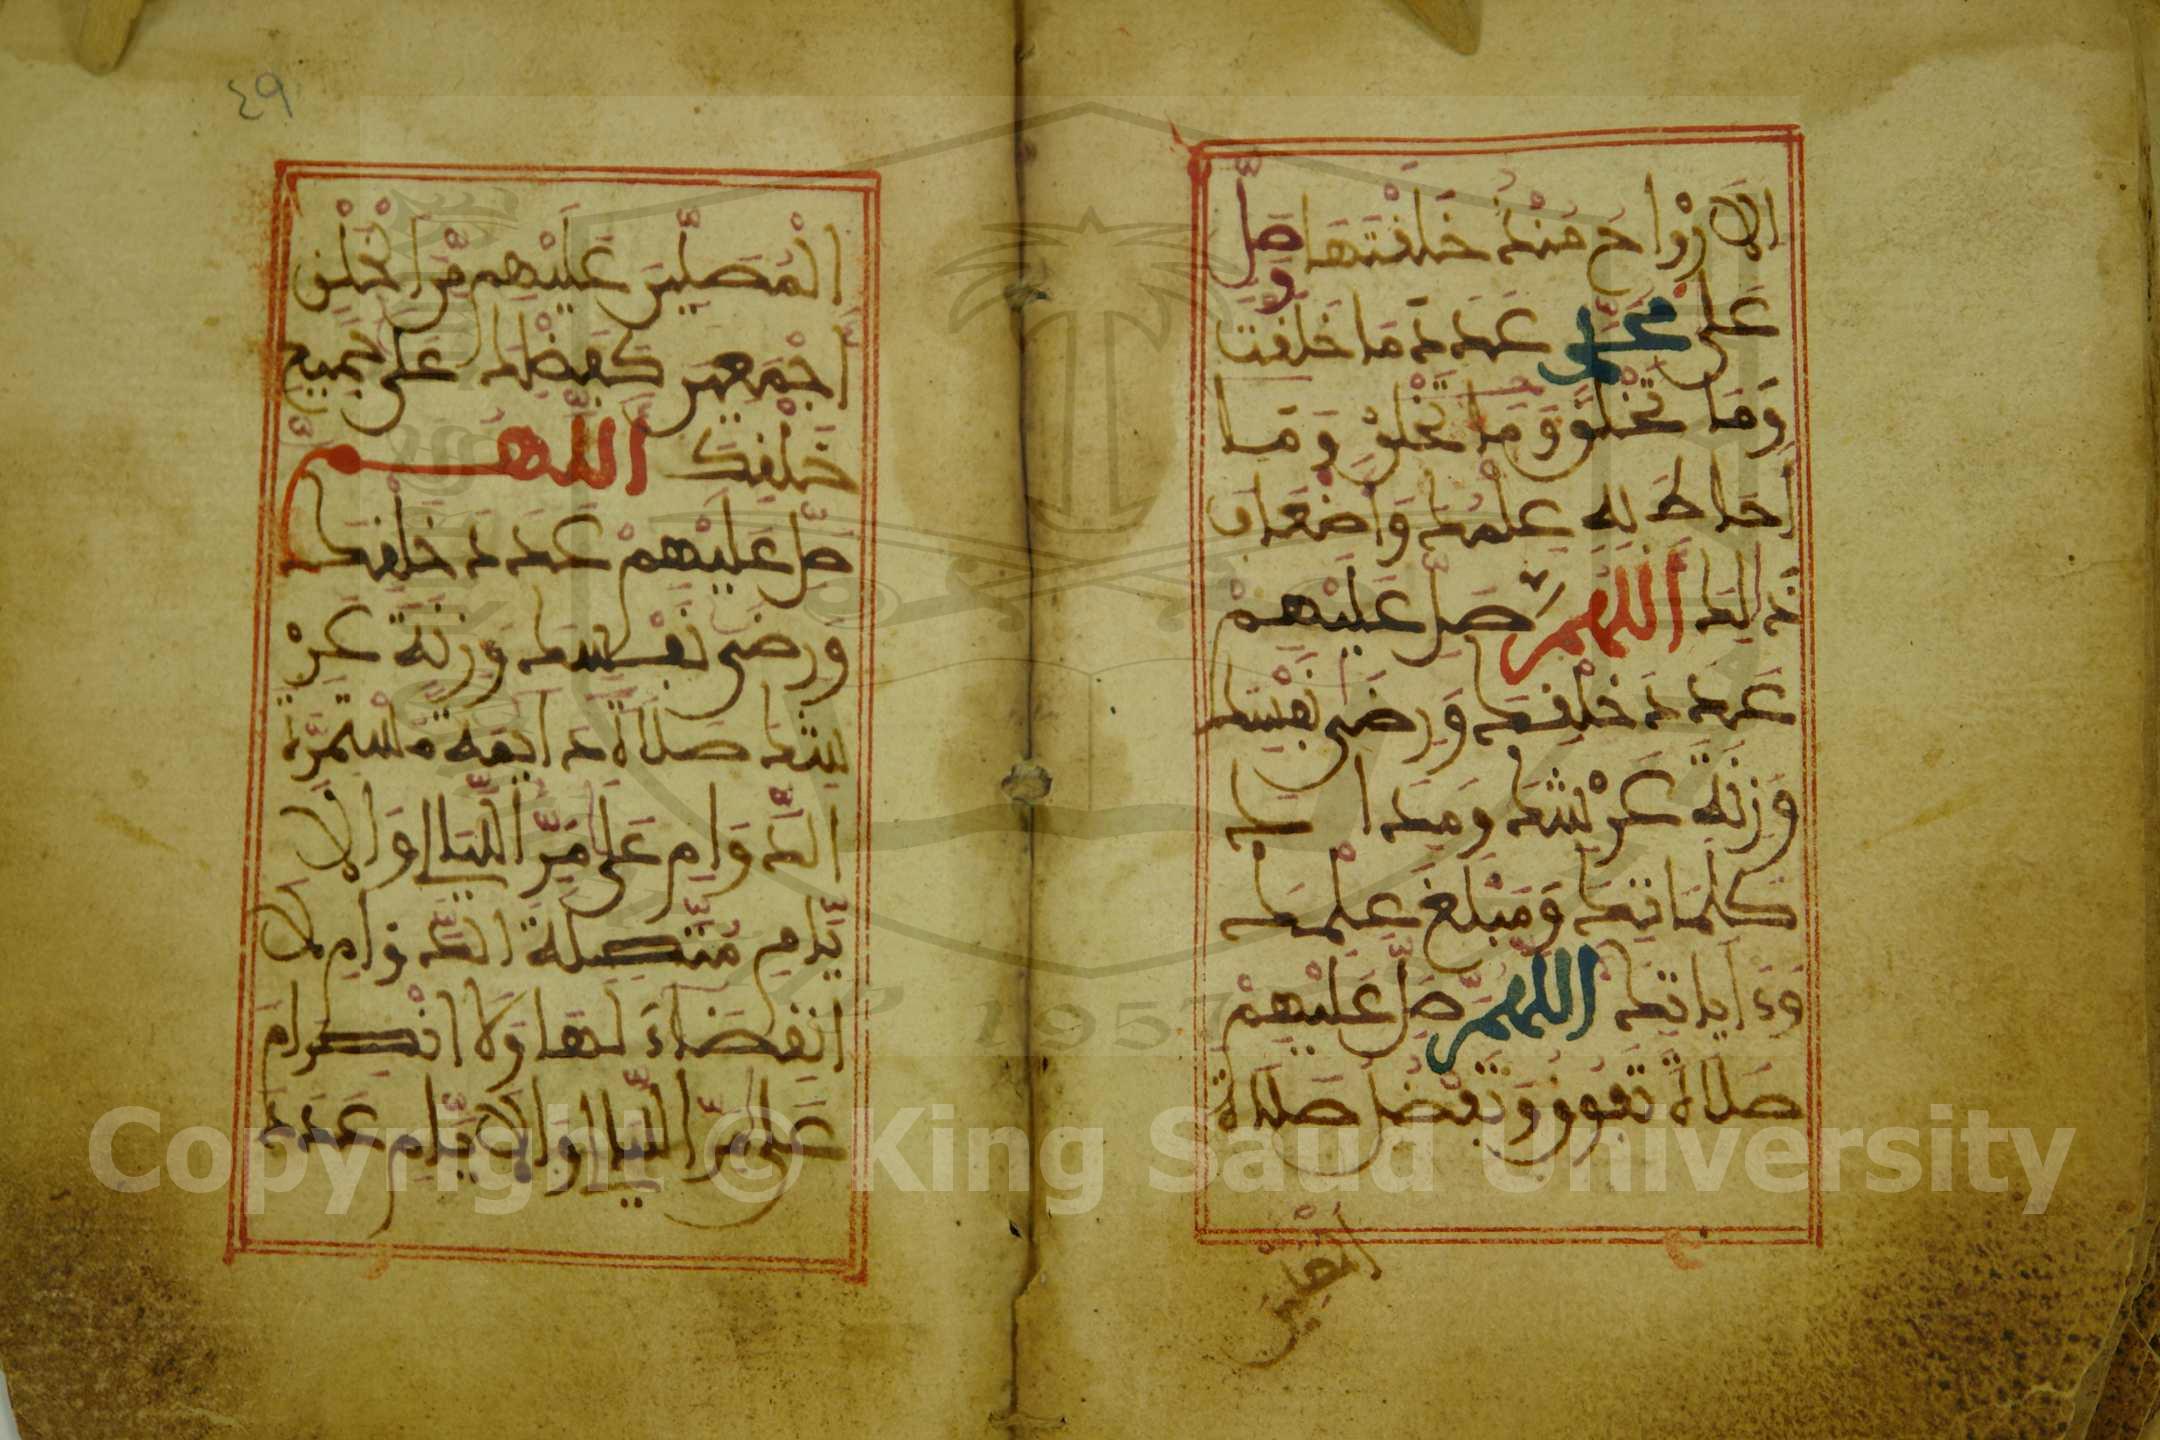 الَارْوَاحَ مُنْذُ خَلَقْتَهَا وَصَلِّ
عَلَى مُحَمَّدٍ عَدَدَ مَا خَلَقْتَ
وَمَا تَخْلُقُ وَمَا تَخْلُقُ وَمَا
اَحَاطَ بِهِ عِلْمُكَ وَاَضْعَافَ
ذَالِكَ اَللَّهُمَّ صَلِّ عَلَيْهِمْ
عَدَدَ خَلْقِكَ وَرِضَى نَفْسِكَ
وَزِنَةَ عَرْشِكَ وَمِدَادَ
كَلِمَاتِكَ وَمَبْلَغَ عِلْمِكَ
وَءَايَاتِكَ اَللَّهُمَّ صَلِّ عَلَيْهِمْ
صَلَاةً تَفُوقُ وَتَفْضُلُ صَلَاةَ
اَلْمُصَلِّينَ
٤٩
اَلْمُصَلِّينَ عَلَيْهِم مِّنَ اَلْخَلْقِ
اَجْمَعِينَ كَفَضْلِكَ عَلَى جَمِيعِ
خَلْقِكَ اَللَّهُمَّ
صَلِّ عَلَيْهِمْ عَدَدَ خَلْقِكَ
وَرِضَى نَفْسِكَ وَزِنَةَ عَرْ
شِكَ صَلَاةً دَايِمَةً مُسْتَمِرَّةَ
اَلدَّوَامِ عَلَى مَرِّ اَللَّيَالِي وَالَا
يَّامِ مُتَّصِلَةَ اَلدَّوَامِ لَا
اَنْقِضَاءَ لَهَا وَلَا اَنْصِرَامَ
عَلَى مَرِّ اَللَّيَالِي وَالَايَّامِ عَدَدَ
1957
Copyright © King Saud University